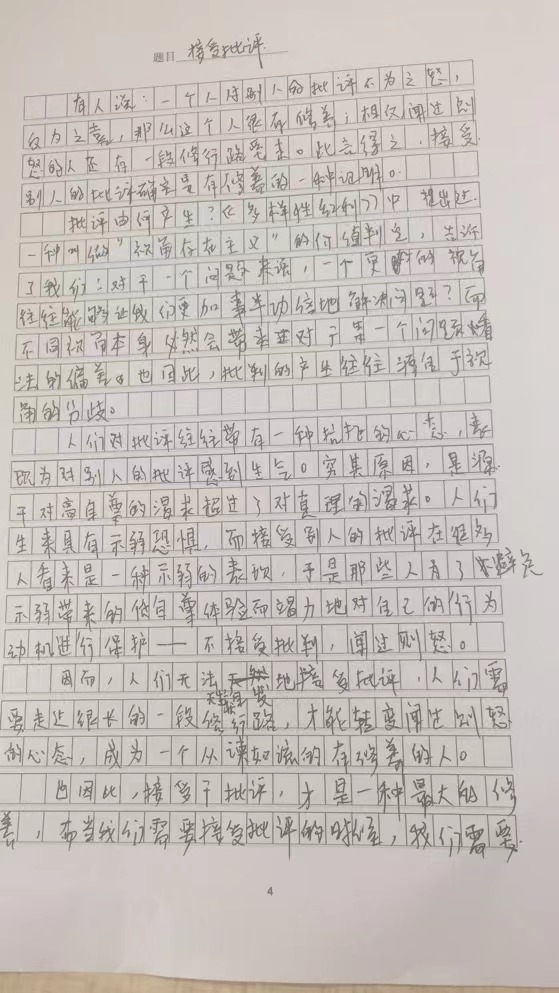 题目 接受批评
有人说：一个人对别人的批评不为之怒，
反为之喜，那么这个人很有修养；相反闻过则
怒的人还有一段修行路要走。此言缘之，接受
别人的批评确实是有修养的一种证明。
批评由何产生？《多样性红利》中提出过
一种叫做“视角存在主义”的价值判定，告诉
了我们：对于一个问题来说，一个更好的视角
往往能够让我们更加事半功倍地解决问题？而
不同视角本身必然会带来些对于某一个问题看
法的偏差。也因此，批判的产生往往源自于视
角的分歧。
人们对批评往往带有一种抗拒的心态，表
现为对别人的批评感到生气。究其原因，是源
于对高自尊的渴求超过了对真理的渴求。人们
生来具有示弱恐惧，而接受别人的批评在很多
人看来是一种示弱的表现，于是那些人为了避免
示弱带来的低自尊体验而竭力地对自己的行为
动机进行保护——不接受批判，闻过则怒。
因而，人们无法地接受批评，人们需
要走过很长的一段修行路，才能转变闻过则怒
的心态，成为一个从谏如流的有修养的人。
也因此，接受了批评，才是一种最大的修
养，而当我们需要接受批评的时候，我们需要
4